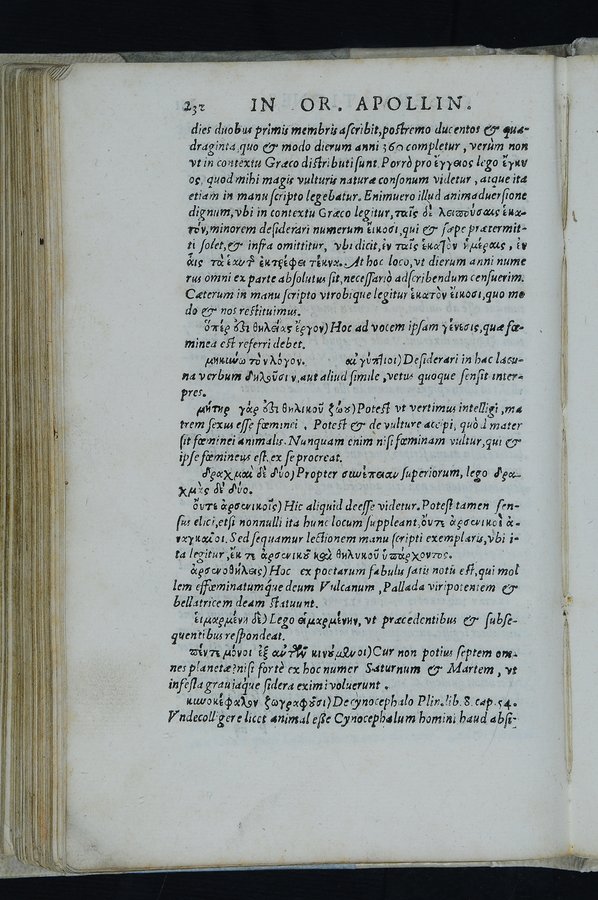 232 IN OR. APOLLIN.
dies duobus primis membris ascribit, postremo ducentos & qua-
draginta, quo & modo dierum anni 360 completur, verùm non
vt in contextu Græco distributi sunt. Porrò pro ἔγγειος lego ἔγκυ
ος, quod mihi magis vulturis naturæ consonum videtur, atque ita
etiam in manuscripto legebatur. Enimuero illud animaduersione
dignum, vbi in contextu Græco legitur, ταῖς δὲ λοιπούσαις ἑκα-
τόν, minorem desiderari numerum εἴκοσι, qui & sæpe prætermit-
ti solet, & infra omittitur, vbi dicit, ἐν ταῖς ἑκατὸν ἡμέραις, ἐν
αἷς τὰ ἑαυτῆ ἐκτρέφει τέκνα. At hoc loco, vt dierum anni nume
rus omni ex parte absolutus sit, necessariò adscribendum censuerim.
Cæterum in manuscripto vtrobique legitur ἑκατὸν εἴκοσι, quo mo
do & nos restituimus.
ὅπερ ὅζι θηλείας ἔργον) Hoc ad vocem ipsam γένεσις, quæ fœ-
minea est referri debet.
μηκιύω τὸν λόγον. αἰγύπτιοι) Desiderari in hac lacu-
na verbum δηλοῦσιν, aut aliud simile, vetus quoque sensit inter-
pres.
μήτηρ γάρ ὅζι θηλικοῦ ζώου) Potest vt vertimus intelligi, ma
trem sexus esse fœminei. Potest & de vulture accipi, quòd mater
sit fœminei animalis. Nunquam enim nisi fœminam vultur, qui &
ipse fœmineus est, ex se procreat.
δραχμαὶ δὲ δύο) Propter συνέπειαν superiorum, lego δρα-
χμὰς δὲ δύο.
οὔτε ἀρσενικοῖς) Hic aliquid deesse videtur. Potest tamen sen-
sus elici, etsi nonnulli ita hunc locum suppleant, οὔτε ἀρσενικοὶ ἀ-
ναγκαῖοι. Sed sequamur lectionem manuscripti exemplaris, vbi i-
ta legitur, ἔκ τε ἀρσενικοῦ καὶ θηλυκοῦ ὑπάρχοντος.
ἀρσενοθήλεις) Hoc ex poetarum fabulis satis notũ est, qui mol
lem effœminatumque deum Vulcanum, Pallada viripotentem &
bellatricem deam statuunt.
εἱμαρμένη δὲ) Lego εἱμαρμένην, vt præcedentibus & subse-
quentibus respondeat.
πέντε μόνοι ἐξ αὐτῶν κινούμενοι) Cur non potius septem om-
nes planetæ? nisi fortè ex hoc numer Saturnum & Martem, vt
infesta grauiaque sidera eximi voluerunt.
κυνοκέφαλον ζωγραφοῦσι) De cynocephalo Plin. lib. 8. cap. 54.
Vnde colligere licet animal esse Cynocephalum homini haud absi-